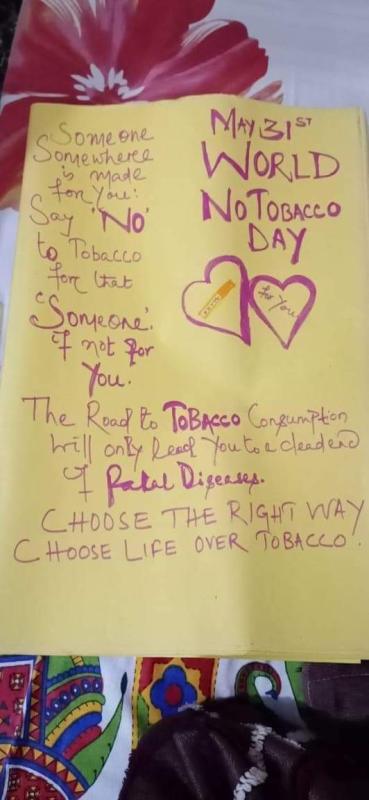 Someone
Somewheree
is made
for You:
Say 'NO'
to Tobacco
for that
'Someone'.
If not for
You.
MAY 31ST
WORLD
NO TOBACCO
DAY
for You
The Road to TOBACCO Consumption
will only lead You to a dead end
of Fatal Diseases.
CHOOSE THE RIGHT WAY
CHOOSE LIFE OVER TOBACCO.